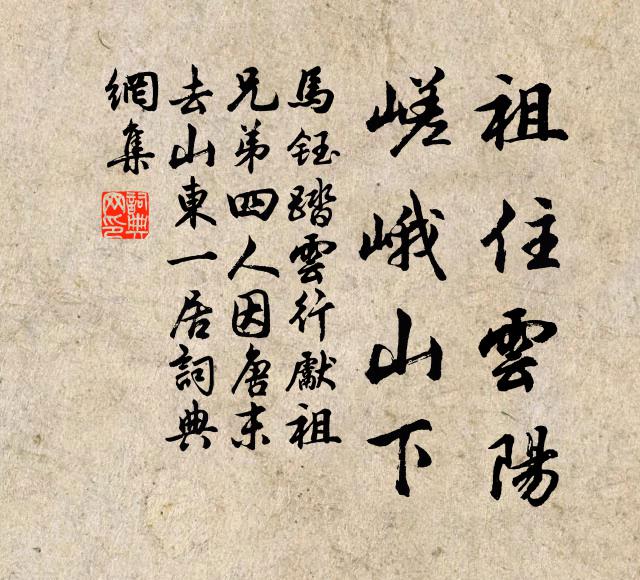 祖住雲陽
嵯峨山下
馬鈺踏雲行獻祖
兄弟四人因唐末
去山東一居詞典
網集
詞典網印